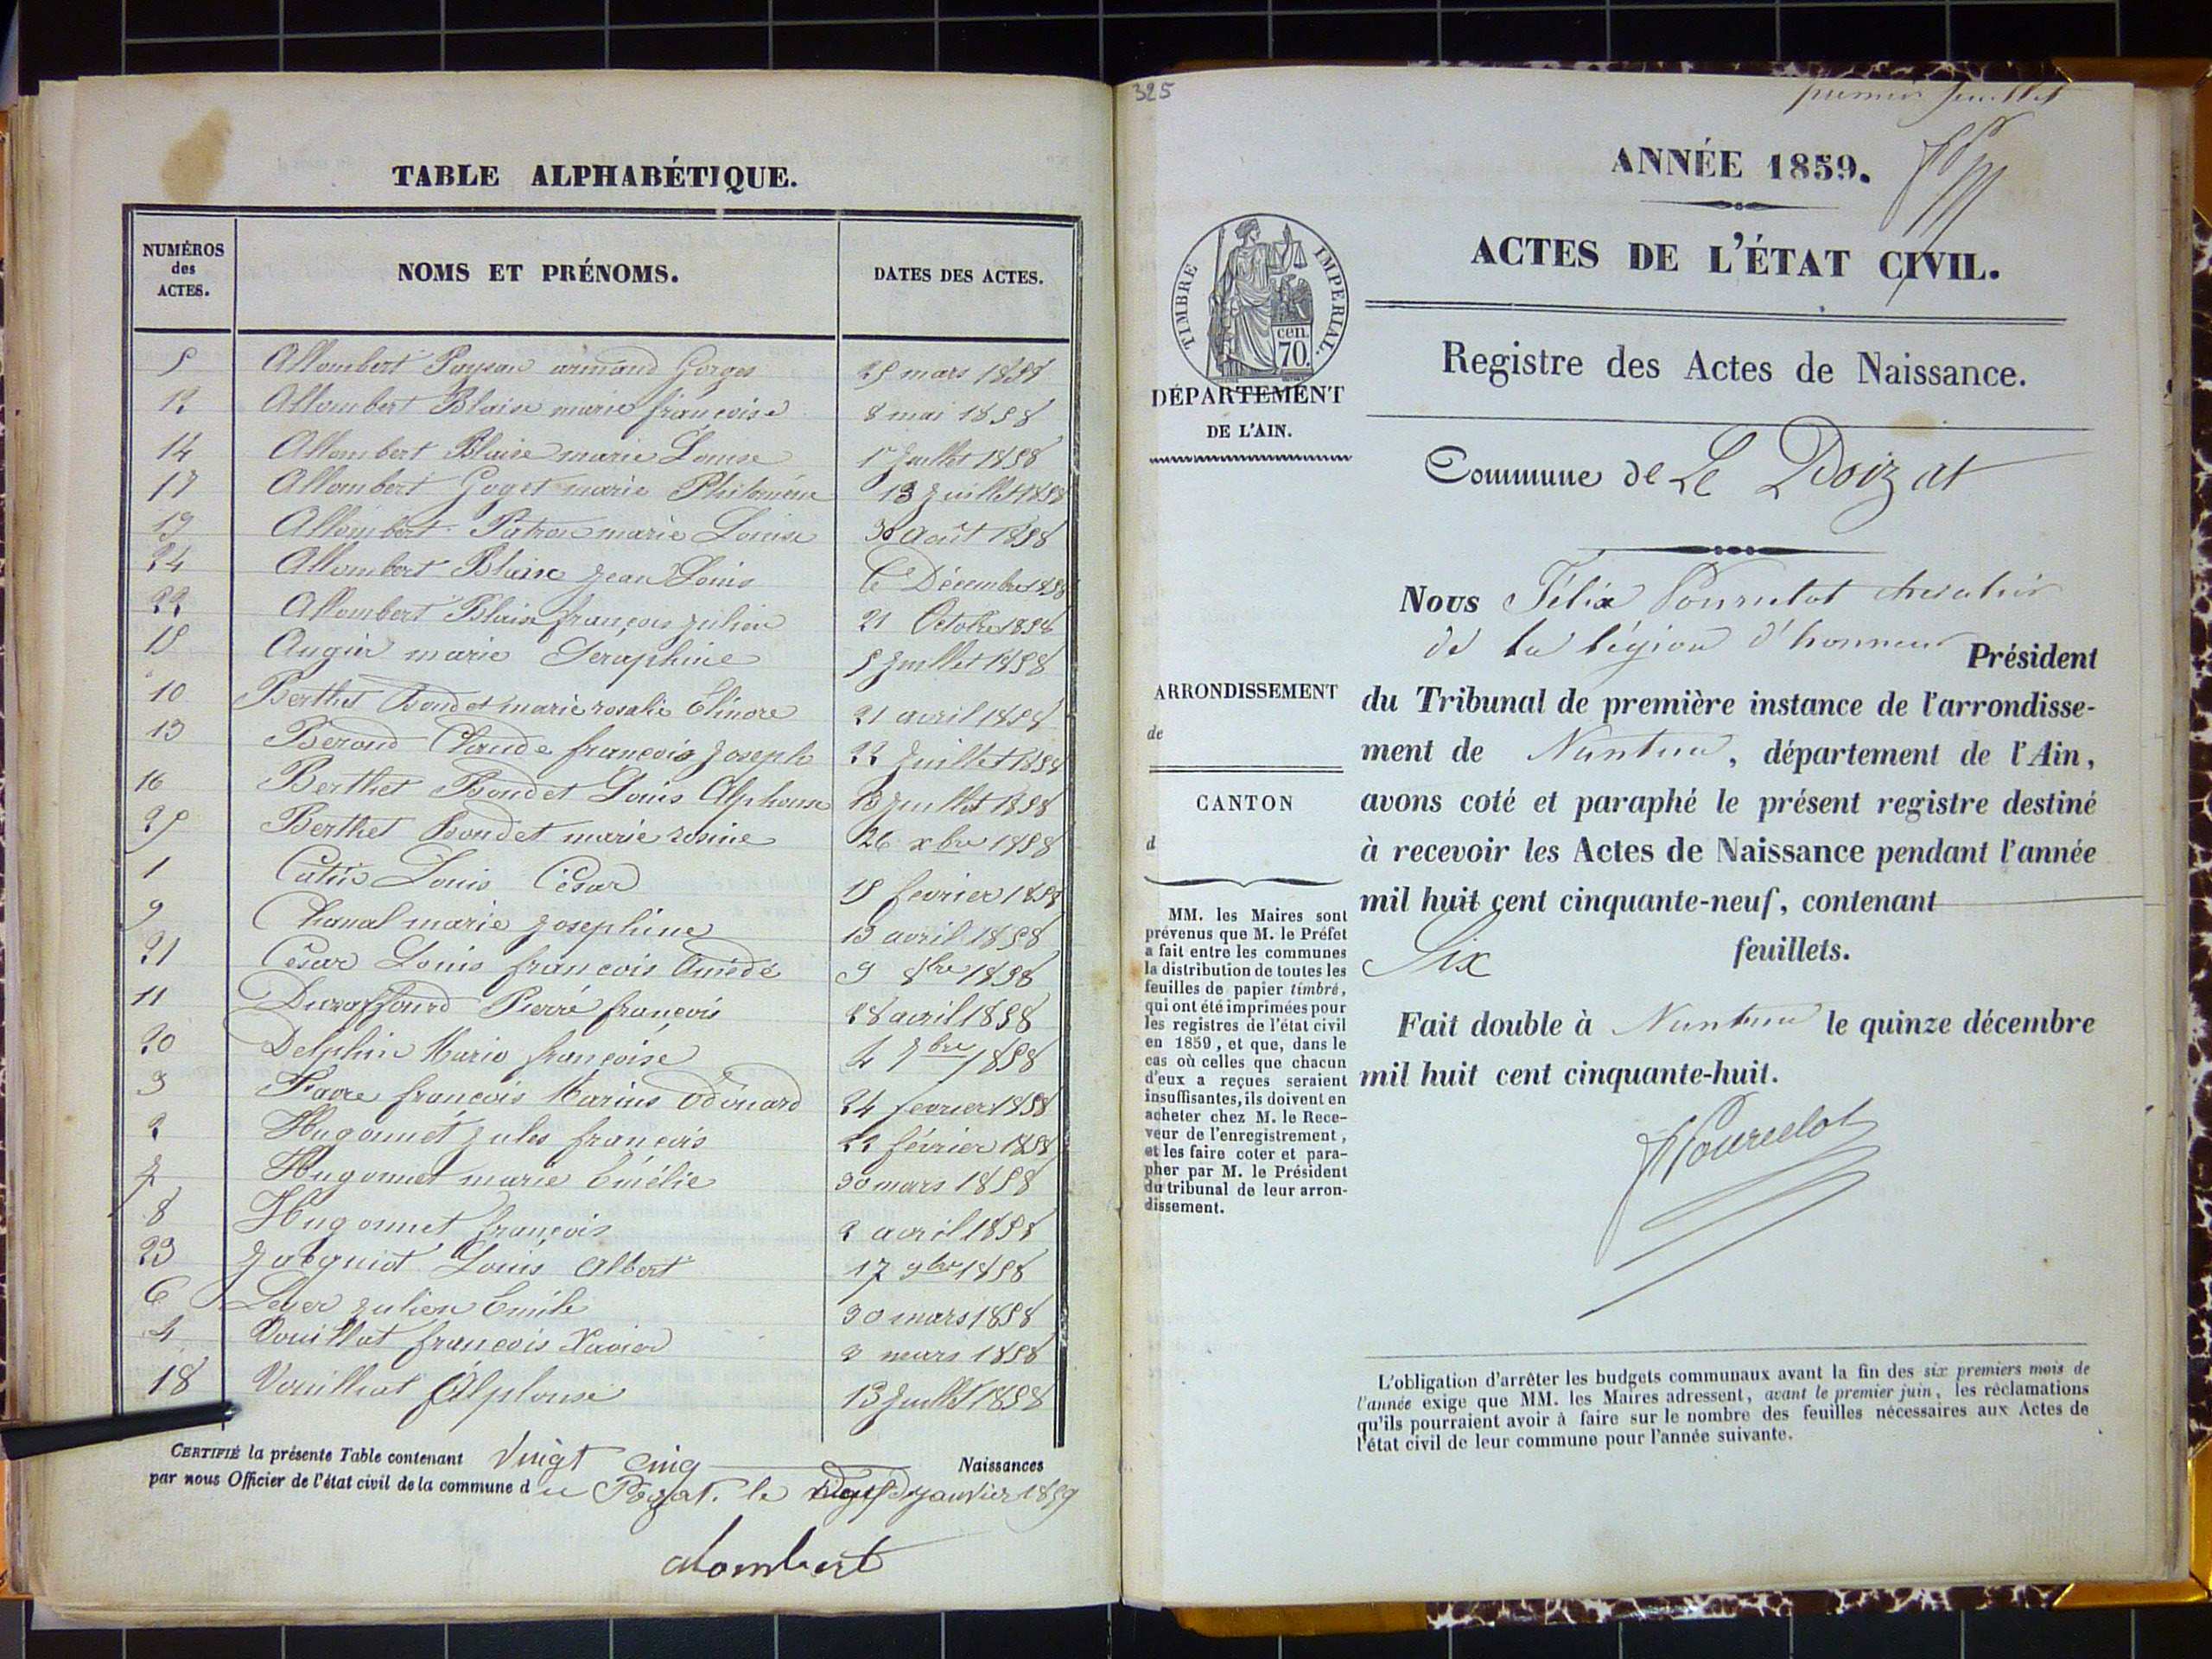 TABLE ALPHABÉTIQUE.
NUMÉROS des ACTES. NOMS ET PRÉNOMS. DATES DES ACTES.
5 Allombert Paysan armand Gorges 25 mars 1858
12 Allombert Blaise marie françoise 8 mai 1858
14 Allombert Blaise marie Louise 1er Juillet 1858
17 Allombert Goget marie Philomène 13 Juillet 1858
19 Allombert Patron marie Louise 30 août 1858
24 Allombert Blaise Jean Louis 6 Décembre 1858
22 Allombert Blaise françois Julien 21 Octobre 1858
15 Augier marie Seraphine 5 Juillet 1858
10 Berthet Boudet marie rosalie Elinore 21 avril 1858
13 Beroud Claude françois Joseph 22 Juillet 1858
16 Berthet Boudet Louis Alphonse 10 Juillet 1858
25 Berthet Boudet marie rosine 26 xbre 1858
1 Cutin Louis César 15 fevrier 1858
9 Chanal marie Josephine 13 avril 1858
21 César Louis francois Amédé 9 8bre 1858
11 Duraffourd Pierre françois 28 avril 1858
20 Delphin Marie françoise 4 7bre 1858
3 Favre françois Marius Odouard 24 fevrier 1858
2 Hugonnet Jules françois 22 février 1858
7 Hugonnet marie Emélie 30 mars 1858
8 Hugonnet françois 2 avril 1858
23 Jacquiot Louis Albert 17 9bre 1858
6 Leger Julien Emile 30 mars 1858
4 Vouillat francois Xavier 3 mars 1858
18 Vouillat Alphonse 13 Juillet 1858
CERTIFIÉ la présente Table contenant Vingt cinq Naissances
par nous Officier de l'état civil de la commune du Poizat. le neuf Janvier 1859
alombert
325
premier feuillet
ANNÉE 1859.
ACTES DE L'ÉTAT CIVIL.
TIMBRE IMPERIAL.
cen. 70.
DÉPARTEMENT
DE L'AIN.
Registre des Actes de Naissance.
Commune de Le Poizat
Nous Félix Pourcelot chevalier
de la légion d'honneur Président
du Tribunal de première instance de l'arrondisse-
ment de Nantua, département de l'Ain,
avons coté et paraphé le présent registre destiné
à recevoir les Actes de Naissance pendant l'année
mil huit cent cinquante-neuf, contenant
Six feuillets.
Fait double à Nantua le quinze décembre
mil huit cent cinquante-huit.
Pourcelot
ARRONDISSEMENT
de
CANTON
d
MM. les Maires sont
prévenus que M. le Préfet
a fait entre les communes
la distribution de toutes les
feuilles de papier timbré,
qui ont été imprimées pour
les registres de l'état civil
en 1859, et que, dans le
cas où celles que chacun
d'eux a reçues seraient
insuffisantes, ils doivent en
acheter chez M. le Rece-
veur de l'enregistrement,
et les faire coter et para-
pher par M. le Président
du tribunal de leur arron-
dissement.
L'obligation d'arrêter les budgets communaux avant la fin des six premiers mois de
l'année exige que MM. les Maires adressent, avant le premier juin, les réclamations
qu'ils pourraient avoir à faire sur le nombre des feuilles nécessaires aux Actes de
l'état civil de leur commune pour l'année suivante.